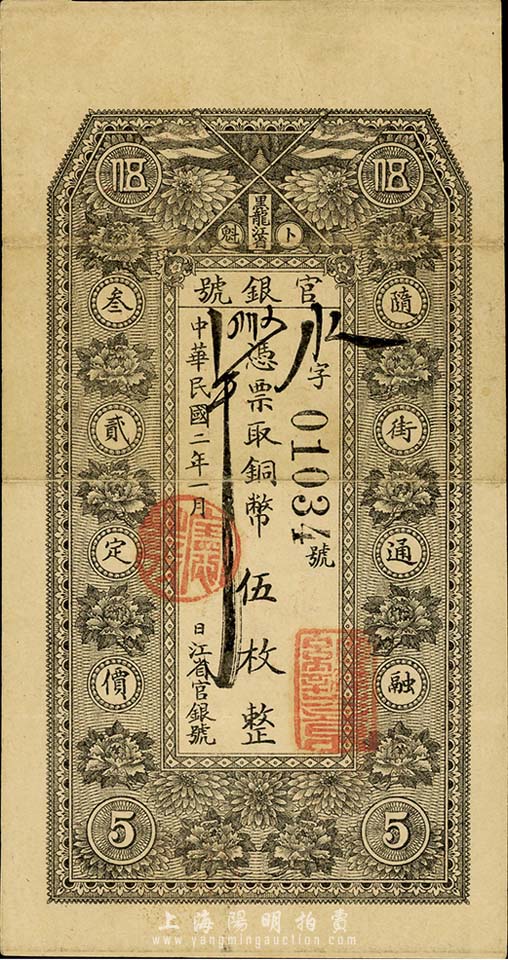 伍 伍
黑龍江省
卜魁
官銀號
隨街通融
永字 01034 號
憑票取銅幣伍枚整
中華民國二年一月 日江省官銀號
叁貳定價
5 5
上海陽明拍賣
www.yangmingauction.com